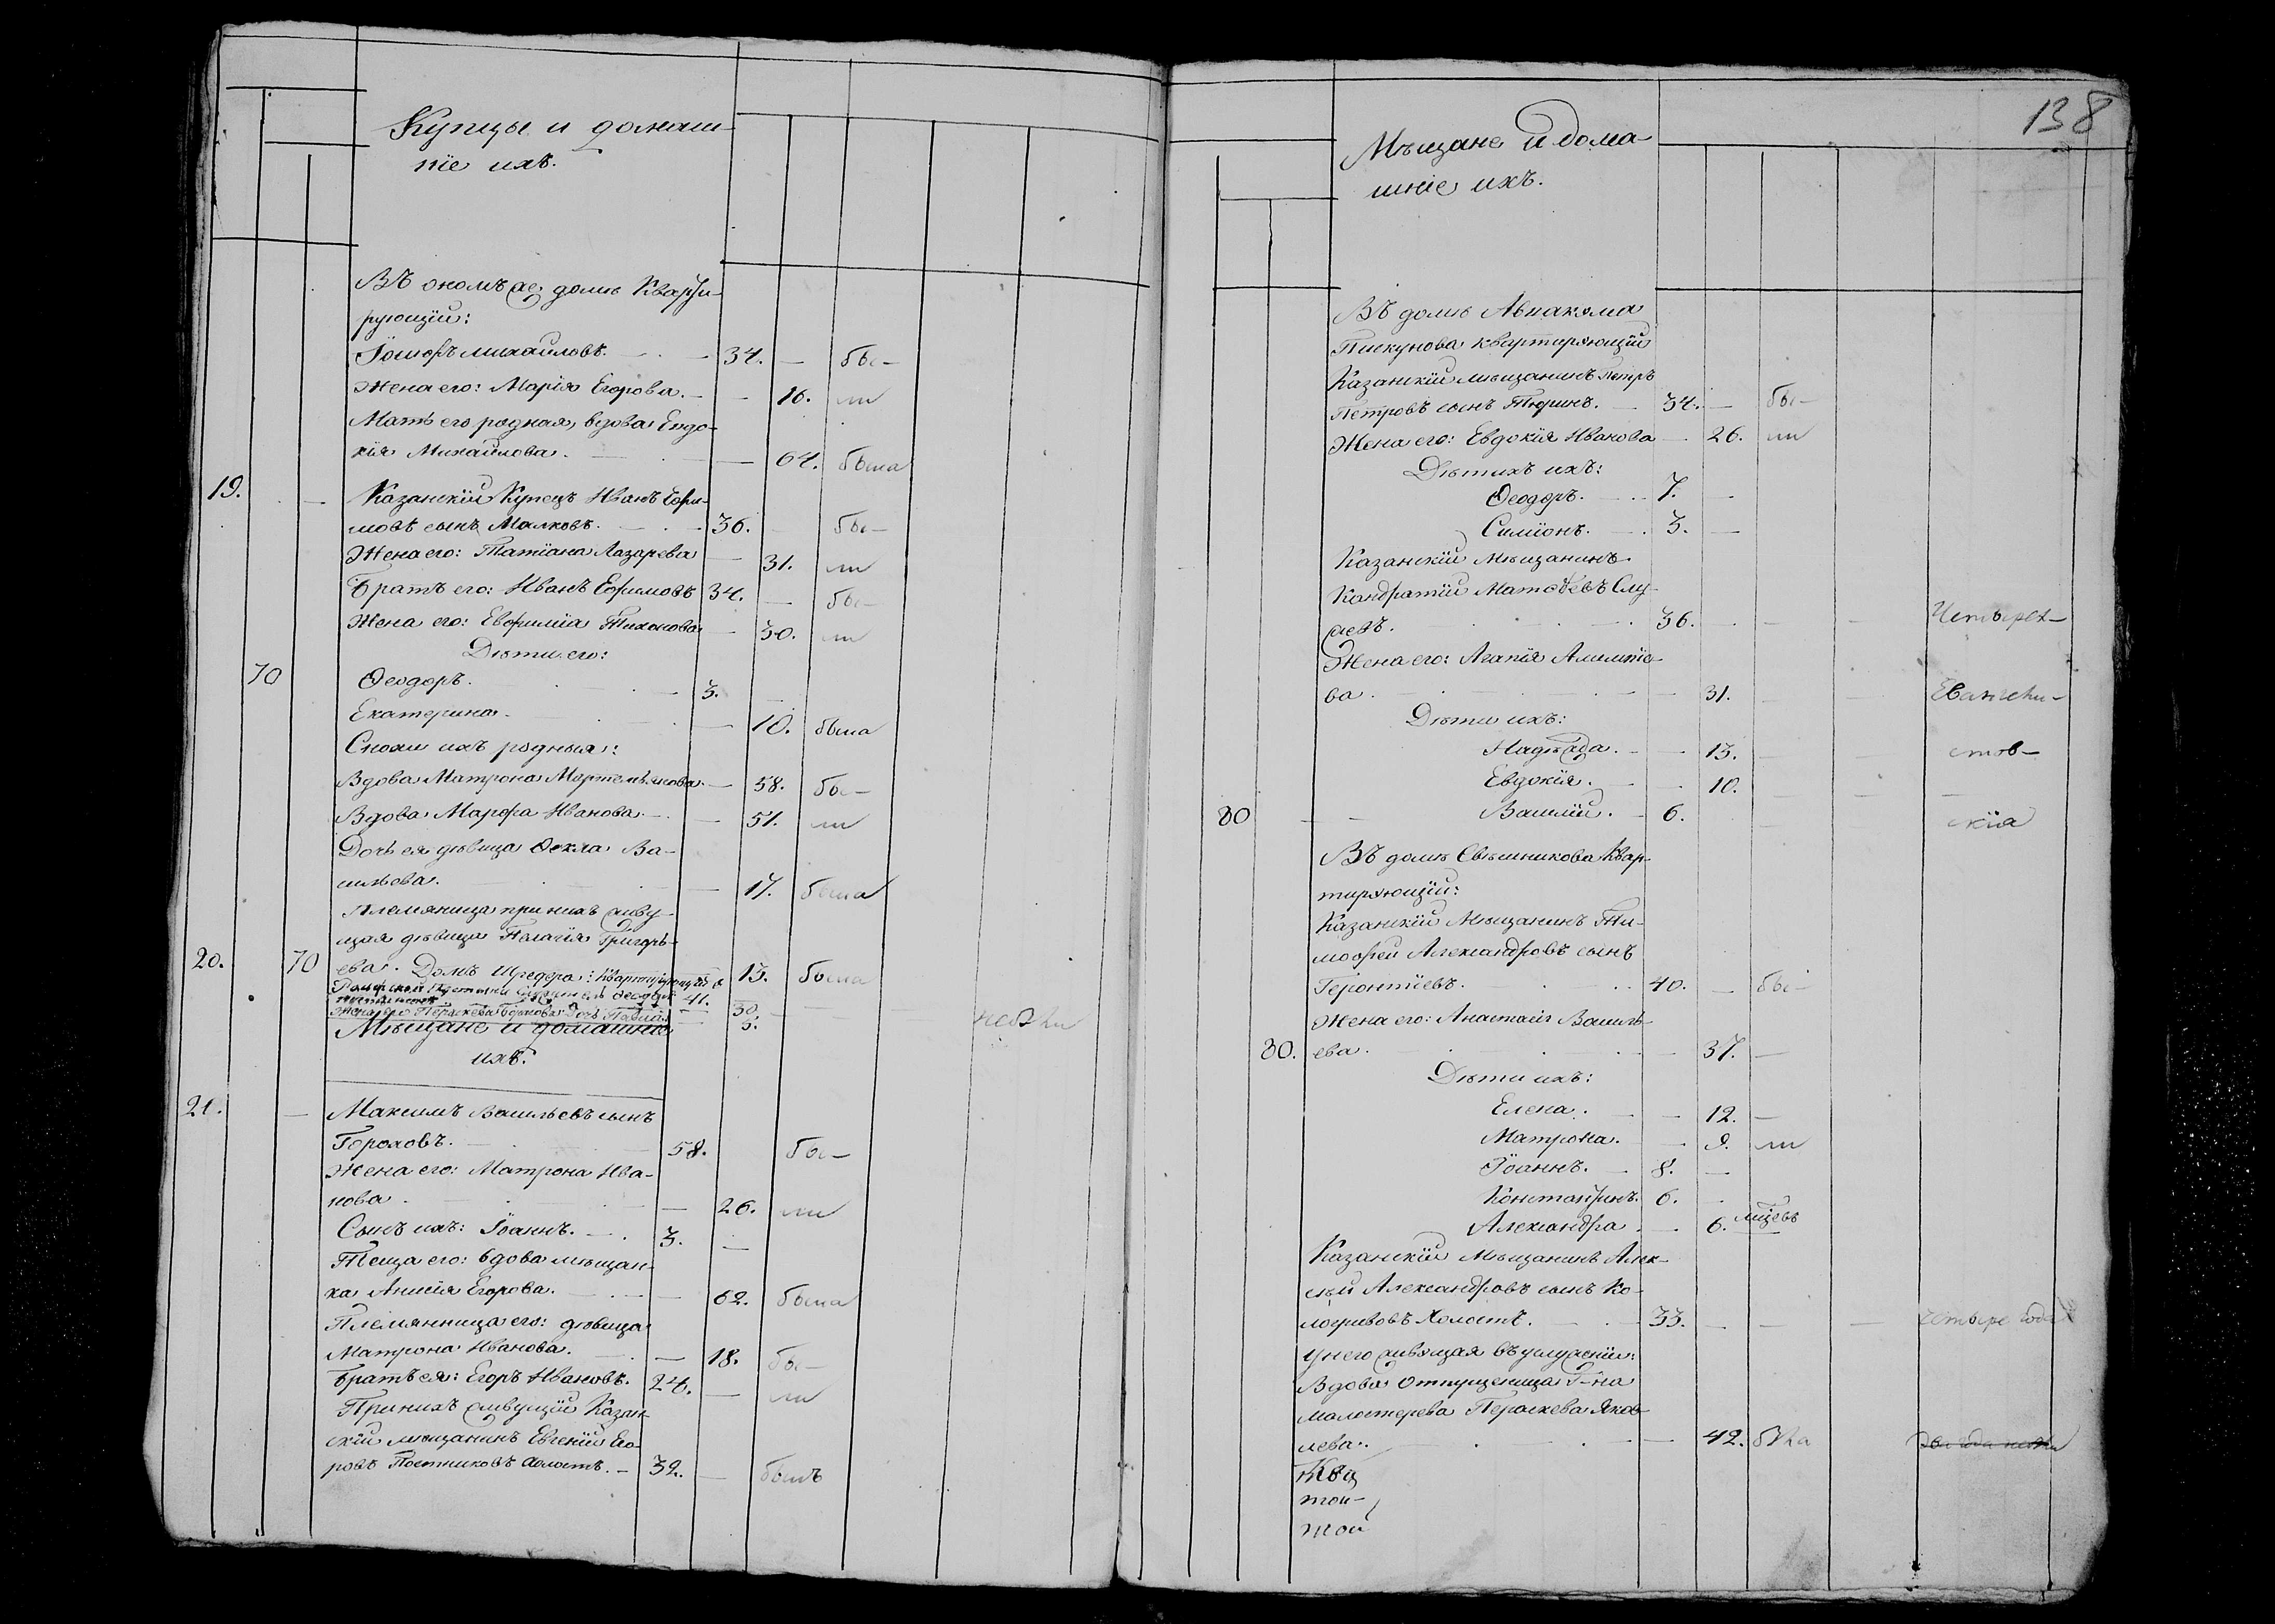 Купцы и домаш-
нiе ихъ.
Въ ономъ же домѣ Кварти-
рующiи:
михаиловъ. 34. — бы-
Жена его: Марiя Егорова. — 16. ли
Мать его родная, вдова Евдо-
кiя Михаилова. — 64. была
19. — Казанскiй Купецъ Иванъ Ефи-
мовъ сынъ Малковъ. 36. бы-
Жена его: Татiана Лазарева — 31. ли
Братъ его: Иванъ Ефимовъ 34. — бы-
Жена его: Евфимiа Тихонова — 30. ли
Дѣти его:
70 Ѳеодоръ. 3. —
Екатерина. — 10. была
Снохи ихъ родныя:
Вдова Матрона — 58. бы-
Вдова Марфа Иванова. — 51. ли
Дочь ея дѣвица Ѳекла Ва-
сильева. — 17. была
Племяница при нихъ живу-
щая дѣвица Пелагiя Григорь-
20. 70 ева. Домъ 13. была
41.
Жена его 30.
5.
Мѣщане и домашнiе
ихъ.
21. — Максимъ Васильевъ сынъ
Гороховъ. 58. бы-
Жена его: Матрона Ива-
нова. — 26. ли
Сынъ ихъ: Iоаннъ. 3. —
Теща его: вдова мѣщан-
ка Анисiя Егорова. — 62. была
Племянница его: дѣвица
Матрона Иванова. — 18. бы-
Братъ ея: Егоръ Ивановъ. 24. — ли
При нихъ живущiй Казан-
скiй мѣщанинъ Евгенiй Его-
ровъ Постниковъ холостъ. — 32. — былъ
138
Мѣщане и дома-
шнiе ихъ.
Въ домѣ Авакума
Пискунова квартирующiй
Казанскiй мѣщанинъ Петръ
Петровъ сынъ Тюринъ. — 34. — бы-
Жена его: Евдокiя Иванова — 26. ли
Дѣти ихъ:
Ѳеодоръ. 7. —
Симiонъ. 3. —
Казанскiй мѣщанинъ
Кондратiй Матѳѣевъ
36. — — — Четырех-
Жена его: Агапiя
ва. — 31. — Евангели-
Дѣти ихъ:
Надѣжда. — 13. — стов-
Евдокiя. — 10. — —
80 — — Василiй. — 6. — скiя
Въ домѣ Свѣшникова Квар-
тирующiи:
Казанскiй Мѣщанинъ Ти-
моѳей Александровъ сынъ
Геронтiевъ. 40. — бы-
Жена его: Анастасiя Василь-
80. ева. — 37. —
Дѣти ихъ:
Елена. — 12. —
Матрона. — 9. ли
Iоаннъ. — 8. —
Константинъ. 6.
Александра. — 6.
Казанскiй мѣщанинъ Алек-
сѣй Александровъ сынъ Ко-
логривовъ Холостъ. 33. — — — четыре года
У него живущая въ услуженiи:
Вдова отпущеница Г-на
Перасковiя Яков-
лева. — 42. два года